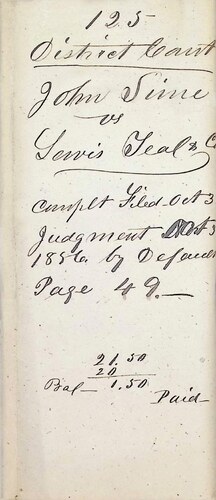 125
District Court
John Sime
vs
Lewis Teal & C
Complt Filed Oct 3
Judgment Oct 3
1856 by Defau
Page 49
21.50
20
Bal 1.50
Paid